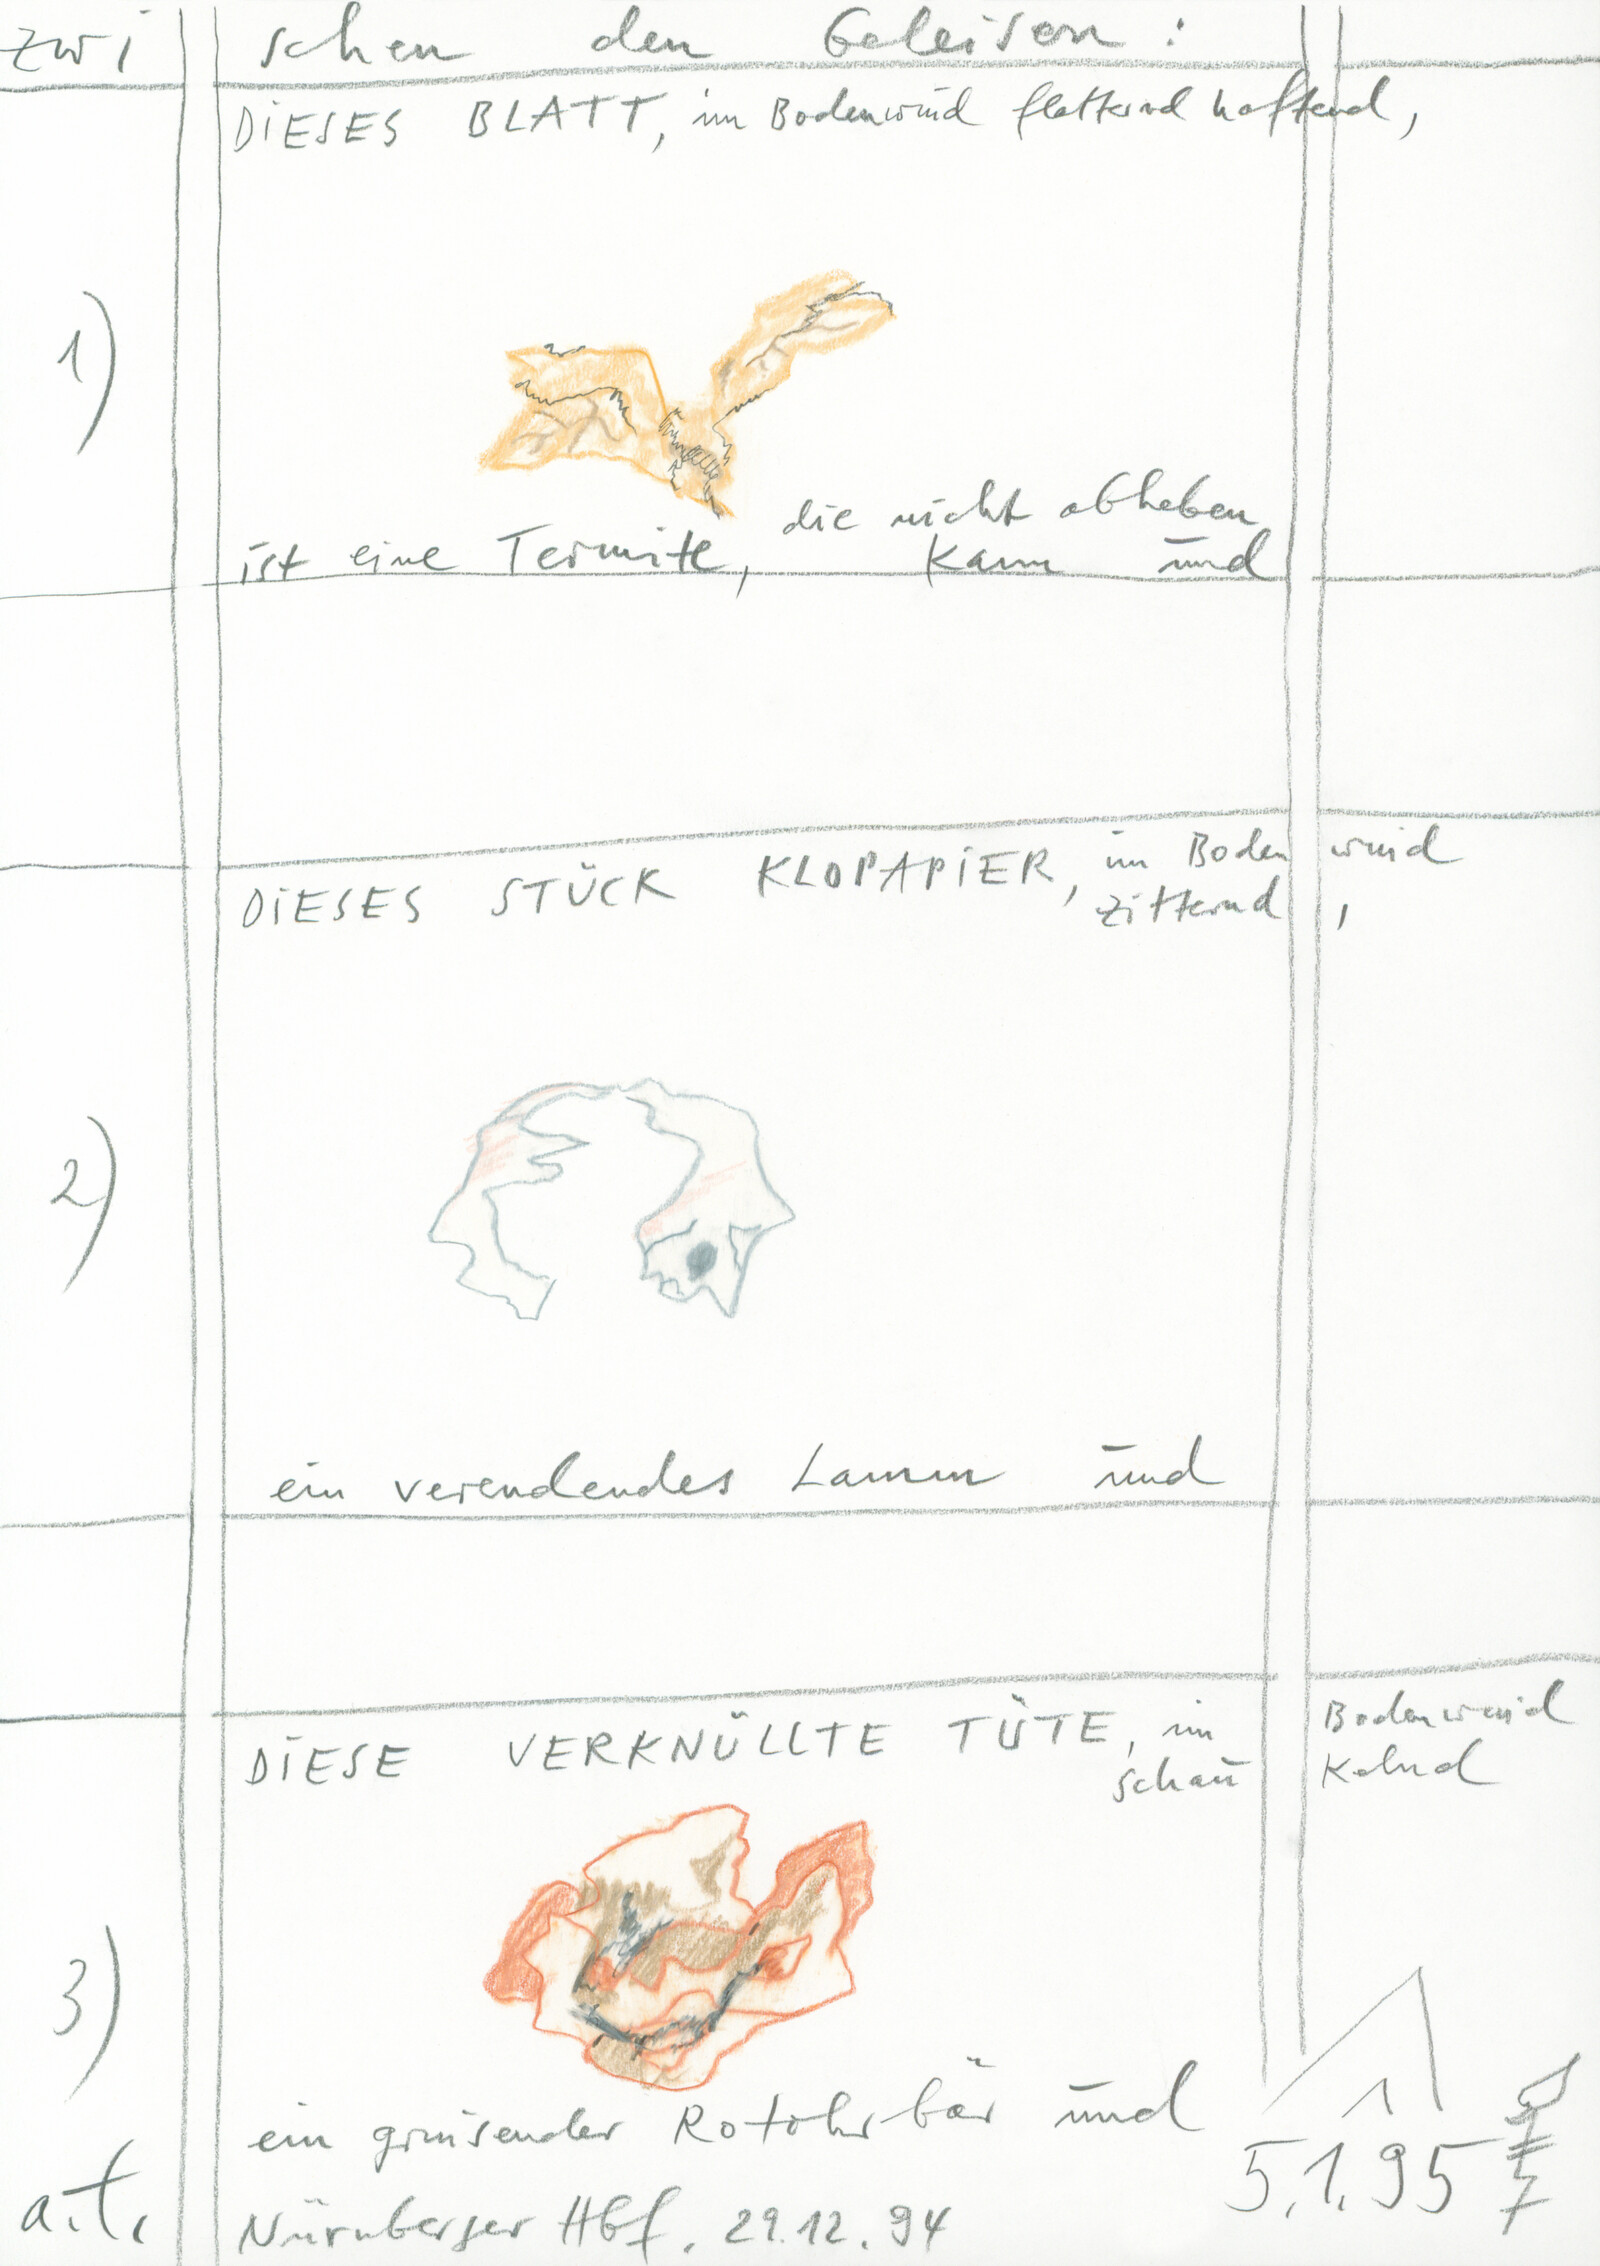 zwischen den Geleisen:
DiESES BLATT, im Bodenwind flatternd haftend,
1)
die nicht abheben
ist eine Termite, kann und
DiESES STÜCK KLOPAPiER, im Bodenwind
zitternd,
2)
ein verendendes Lamm und
DiESE VERKNÜLLTE TÜTE, im Bodenwind
schaukelnd
3)
ein grinsender Rotohrbär und
5.1.95
a.t. Nürnberger Hbf. 29.12.94